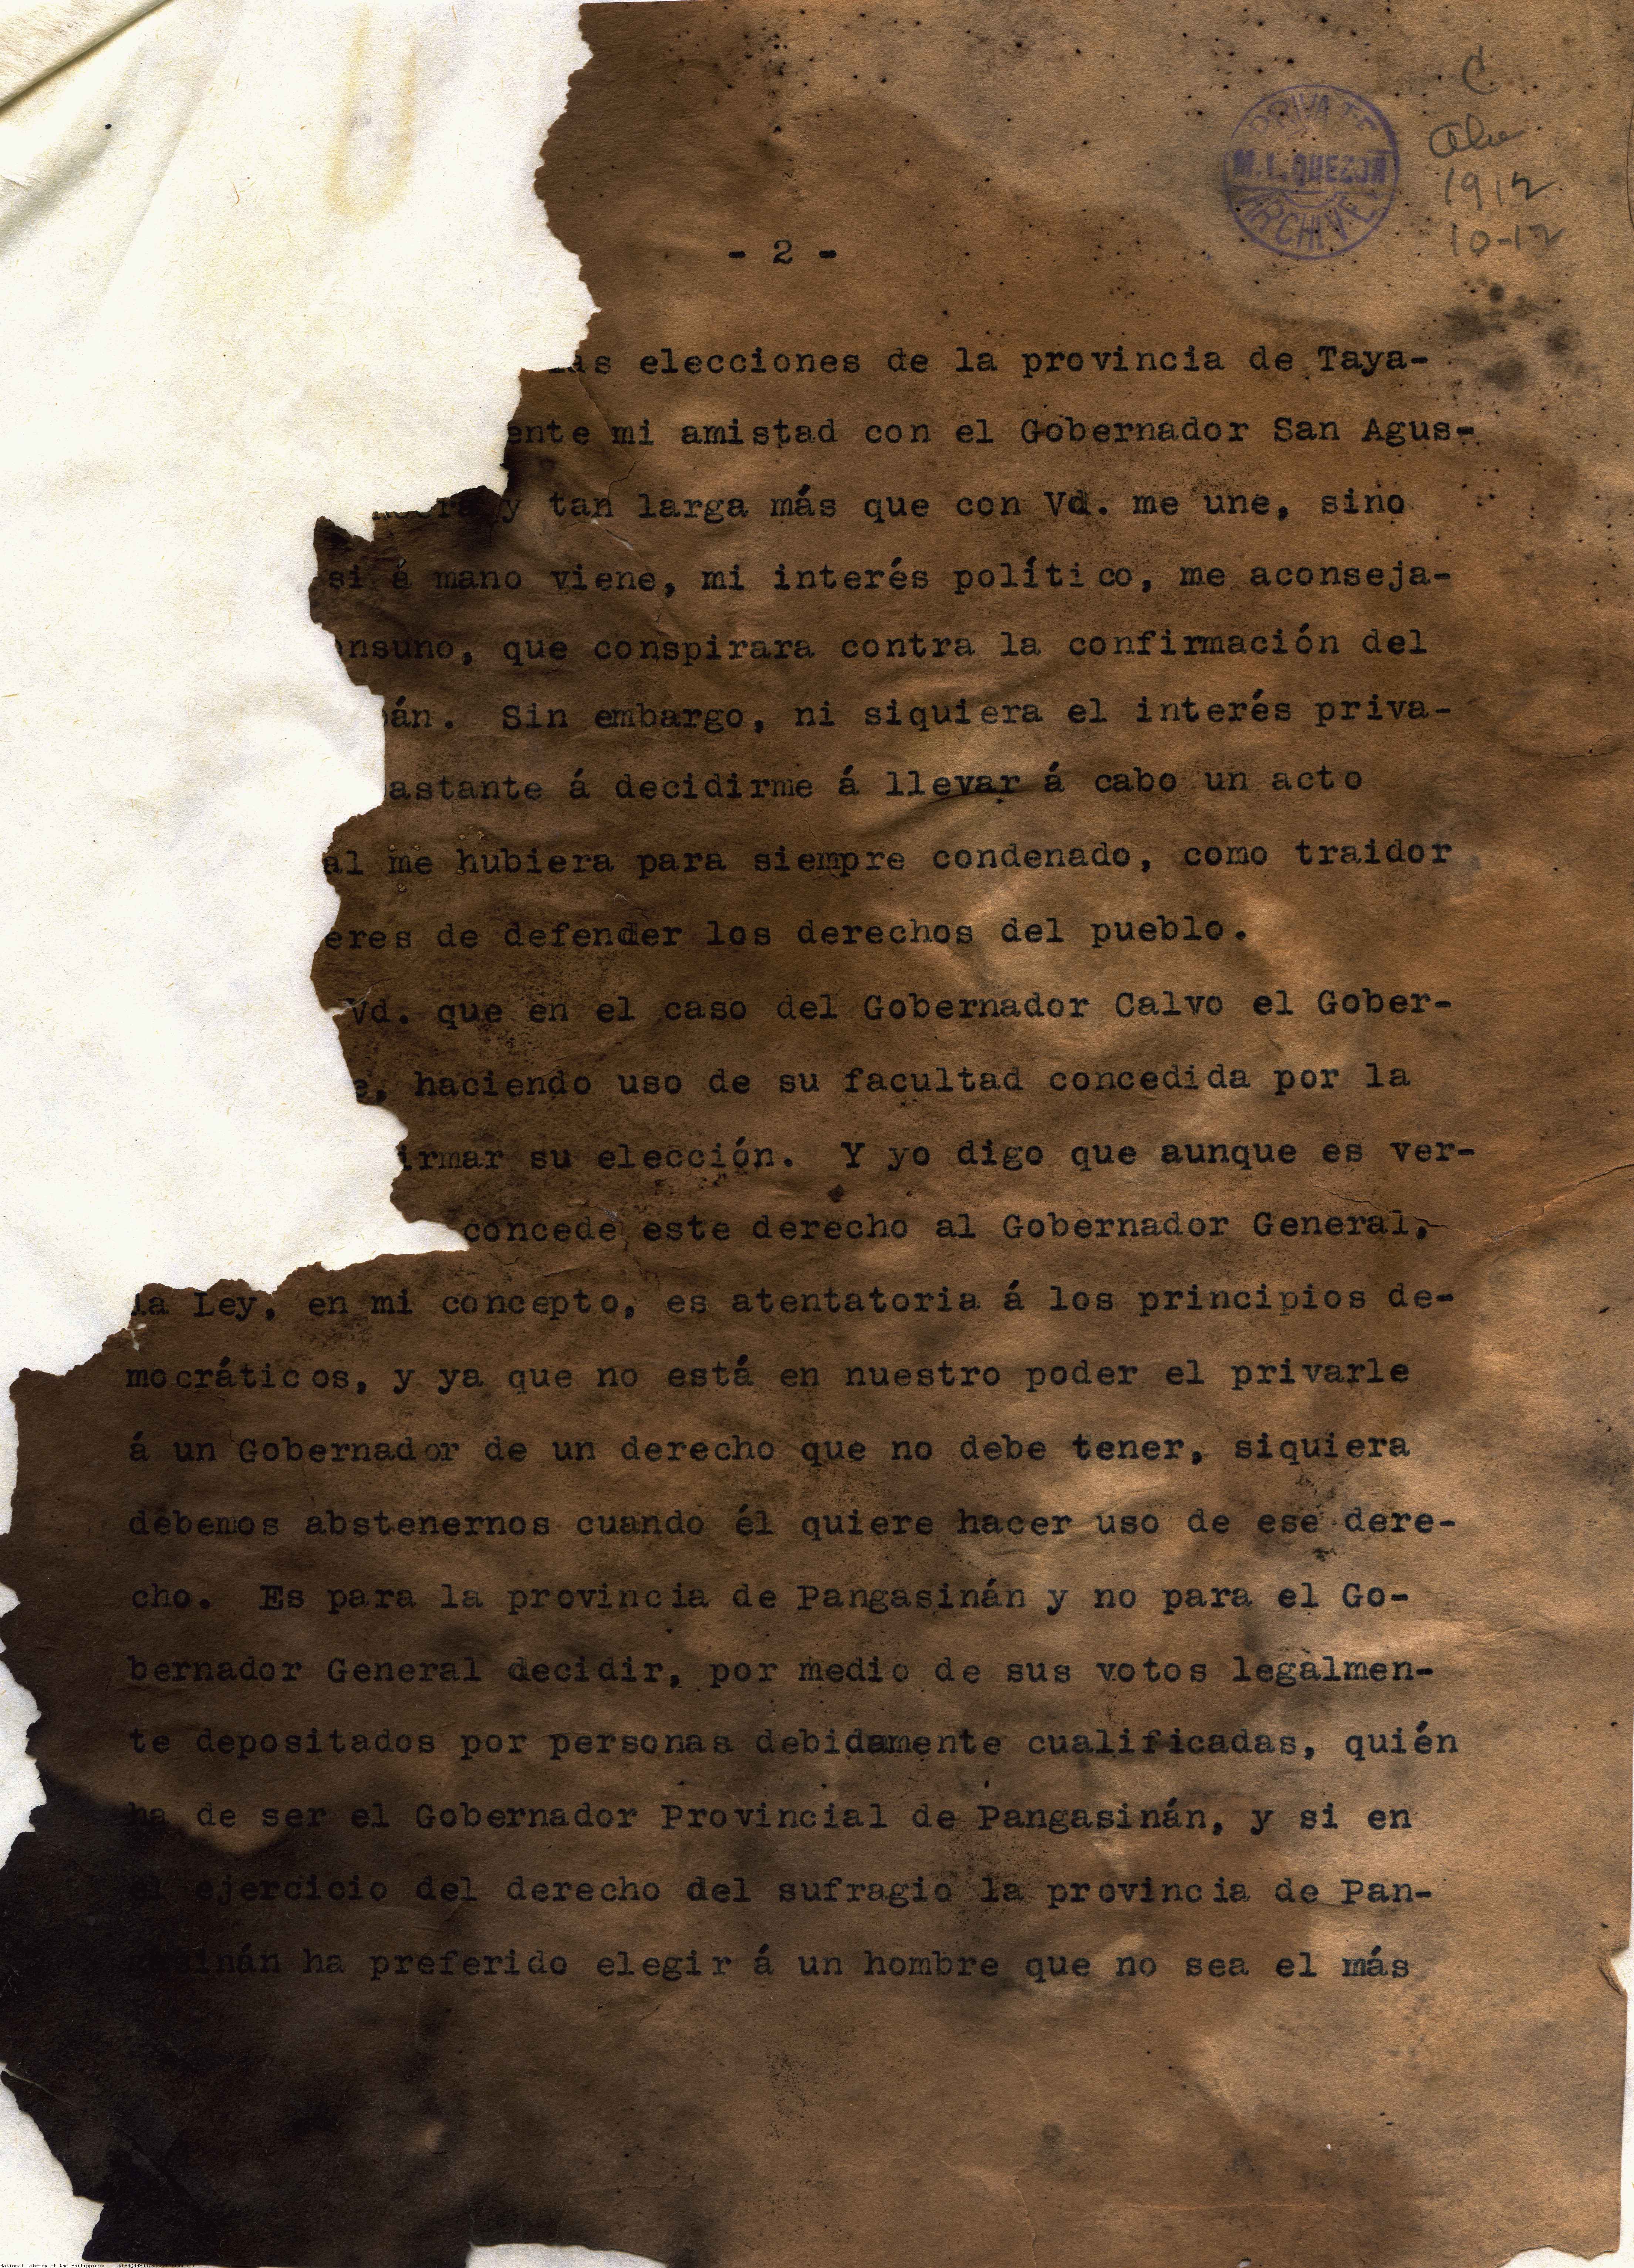 PRIVATE
M. L. QUEZON
ARCHIVE
C
1912
10-12
- 2 -
las elecciones de la provincia de Taya-
ente mi amistad con el Gobernador San Agus-
y tan larga más que con Vd. me une, sino
si á mano viene, mi interés político, me aconseja-
nsuno, que conspirara contra la confirmación del
án. Sin embargo, ni siquiera el interés priva-
astante á decidirme á llevar á cabo un acto
al me hubiera para siempre condenado, como traidor
eres de defender los derechos del pueblo.
Vd. que en el caso del Gobernador Calvo el Gober-
e, haciendo uso de su facultad concedida por la
irmar su elección. Y yo digo que aunque es ver-
concede este derecho al Gobernador General,
la Ley, en mi concepto, es atentatoria á los principios de-
mocráticos, y ya que no está en nuestro poder el privarle
á un Gobernador de un derecho que no debe tener, siquiera
debemos abstenernos cuando él quiere hacer uso de ese dere-
cho. Es para la provincia de Pangasinán y no para el Go-
bernador General decidir, por medio de sus votos legalmen-
te depositados por personas debidamente cualificadas, quién
ha de ser el Gobernador Provincial de Pangasinán, y si en
el ejercicio del derecho del sufragio la provincia de Pan-
gasinán ha preferido elegir á un hombre que no sea el más
National Library of the Philippines